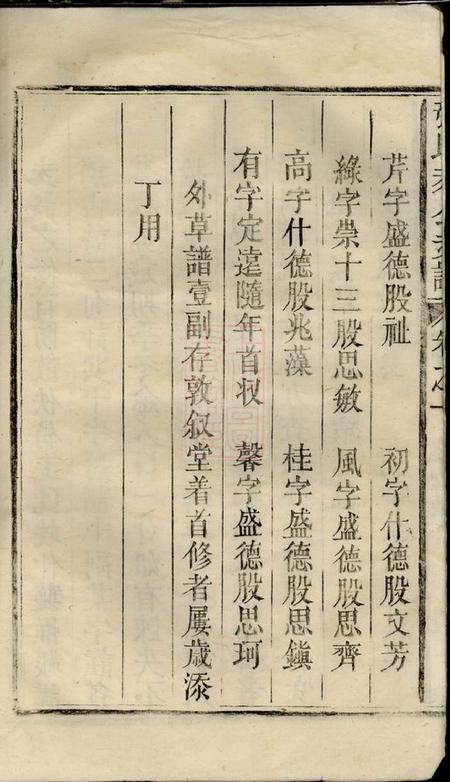 芹字盛德股祉　初字什德股文芳
綠字崇十三股思敏　風字盛德股思齊
高字什德股兆藻　桂字盛德股思鎭
有字定遠隨年首収　馨字盛德股思珂
外草譜壹副存敦叙堂着首修者屢歲添
丁用